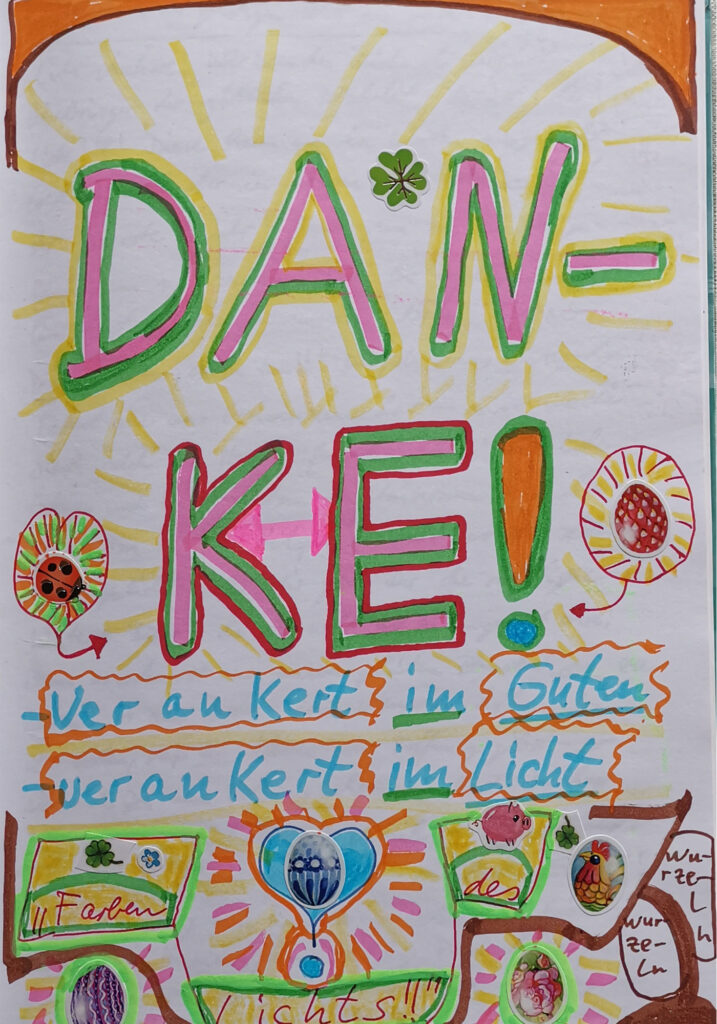 DAN-
KE!
-Ver an Kert im Guten
-ver an Kert im Licht
"Farben
des
Lichts!!"
wu-
rze-
ln
wur-
ze-
ln